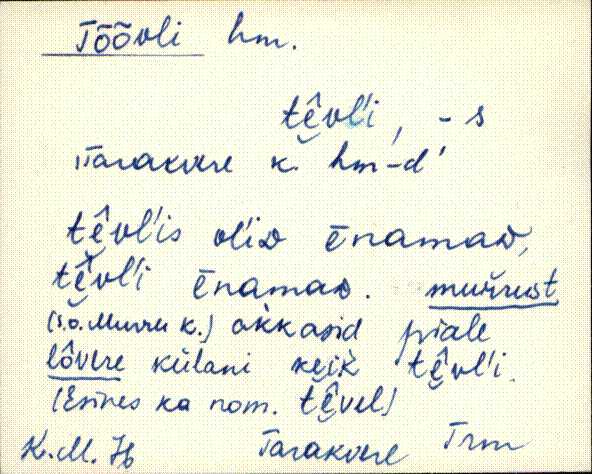 Tõõvli hm.
tê̮vl'i, -s
Tarakvere k. hm-d
tê̮vl'is ol'iᴅ ēnamaᴅ,
tê̮vl'i ēnamaᴅ. murrust
(s.o. Murru k.) akkasid piale
lôvere külani keik tê̮vl'i.
(Esines ka nom. tê̮vel)
K.M. Tarakvere Trm